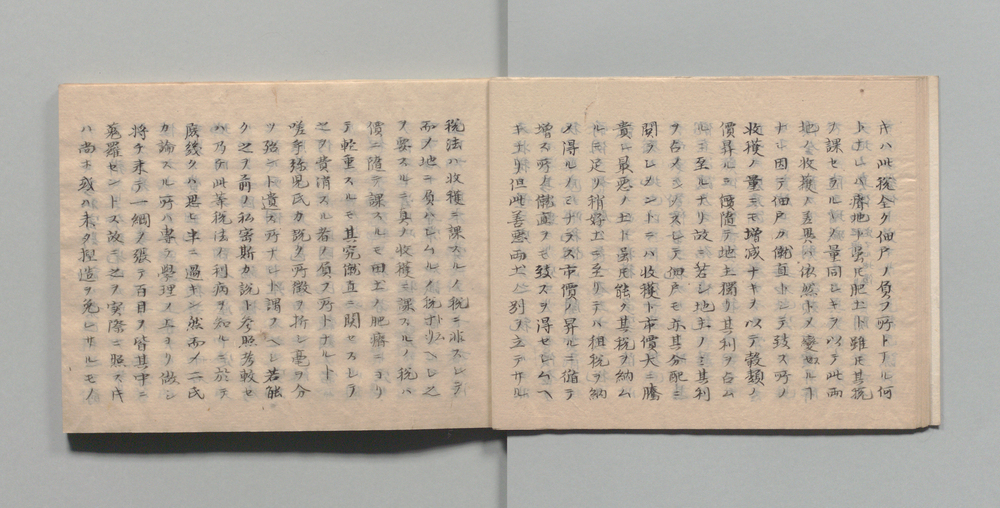 キハ此税全ク佃戸ノ負フ所トナル何
トナレハ瘠地ト雖モ肥土ト雖モ其税
ヲ課セラルヽ量同シキヲ以テ此両
地ノ收獲ノ差異ハ依然トメ変セルコ
ナシ因テ佃戸カ僦直トシテ致ス所ノ
收獲ノ量ニモ增減ナキヲ以テ穀類ノ
價昇ルニ儘随テ地主獨リ其利ヲ占ム
ルニ至ルナリ故ニ若シ地主ノミ其利
ヲ占メシメスシテ佃戸モ亦其分配ニ
関ラシメントニハ收獲ト市價大ニ騰
貴シ最悪ノ土ト雖モ能ク其税ヲ納ム
ルニ足リ稍好土ニ至リテハ租税ヲ納
メ得ルノミナラス市價ノ昇ルニ循テ
增ス所ノ僦直ヲモ致スヲ得セシムヘ
キナリ但此善悪両土ノ別ヲ立テサル
税法ハ收獲ニ課スルノ税ニ非スシテ
而メ地ニ負ハシムルノ税ナリヘシ之
ヲ要スルニ真ノ收獲ニ課スルノ税ハ
價ニ随テ課スルモ田土ノ肥瘠ニヨリ
テ軽重スルモ其究僦直ニ関セスシテ
之ヲ費消スル者ノ負フ所トナルト
嗟乎弥児氏カ説ク所微ヲ折シ毫ヲ分
ツ殆ント遺ス所ナシト謂フヘシ若能
ク之ヲ前ノ私密斯カ説ト参照考較セ
ハ乃チ此等税法ノ利病ヲ知ルニ於テ
底幾クハ思ヒ半ニ過キン然而メ二氏
カ論スル所ハ專ラ學理ノ上ヨリ做シ
將チ来テ一綱ノ張テ百目ヲ皆其中ニ
蒐羅セントス故ニ之ヲ実際ニ照スキ
ハ尚ホ或ハ未タ捏造ヲ免レサルモノ